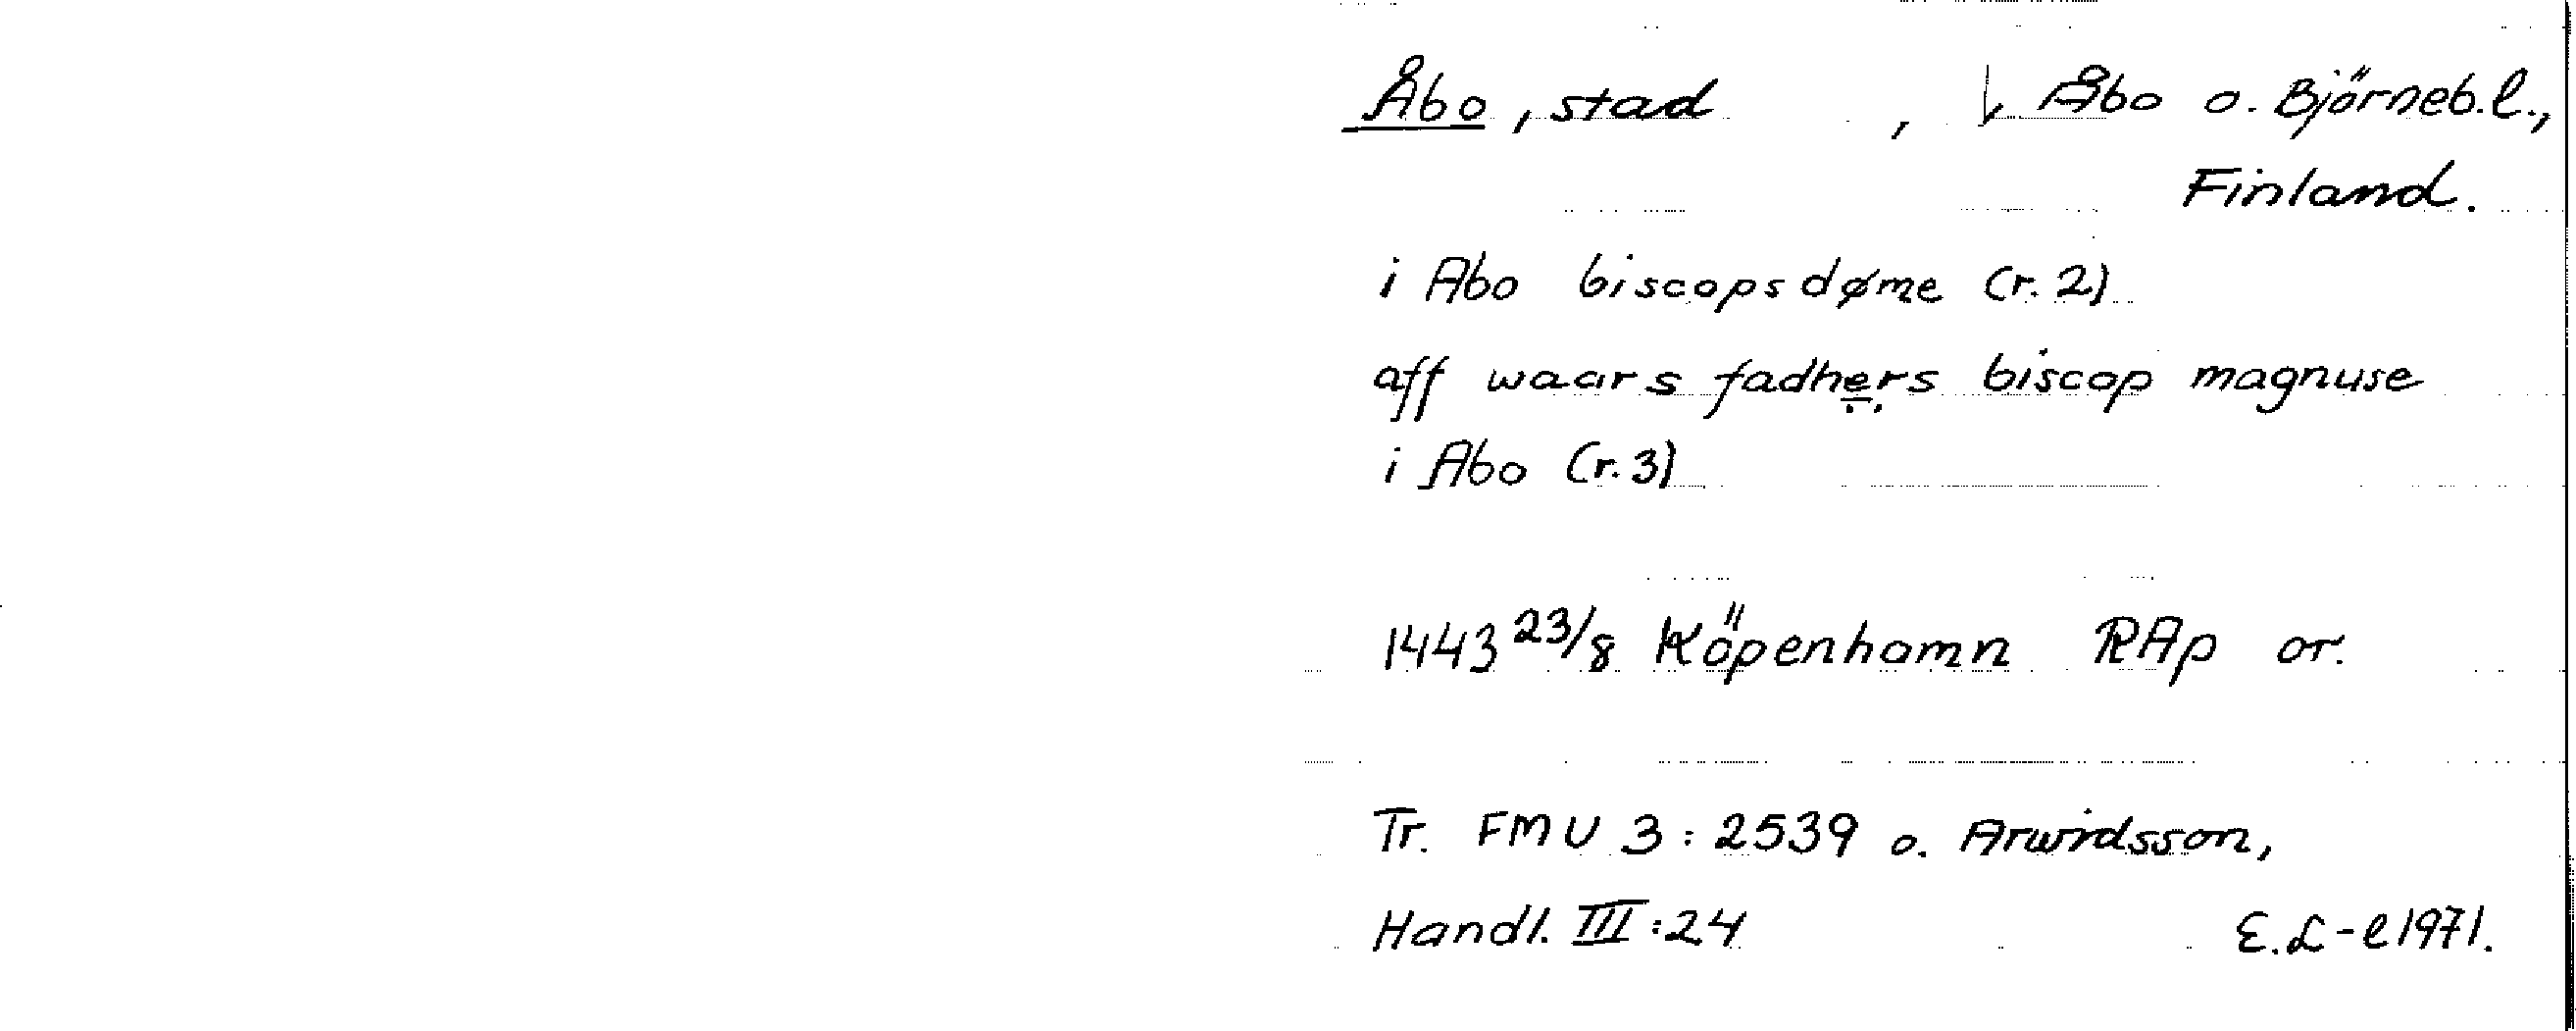 Åbo, stad , Åbo o. Björneb.l.,
Finland.
i Abo biscopsdøme (r. 2)
aff waars fadhers biscop magnuse
i Abo (r. 3)
1443 23/8 Köpenhamn RAp or.
Tr. FMU 3:2539 o. Arwidsson,
Handl. III:24 E.L-l 1971.